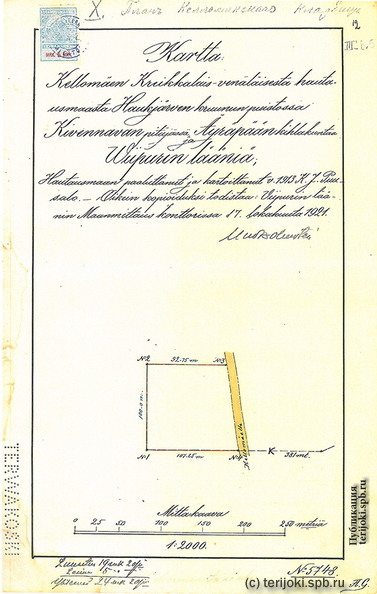 X. Планъ Келломякскаго Кладбища
12
Kartta
Kellomäen Kreikkalais-venäläisestä hauta-
usmaasta Haukjärven kruununpuistossa
Kivennavan pitäjässä ja Äyräpään kihlakuntaa
Wiipurin lääniä;
Hautausmaan paaluttanut ja kartoittanut v. 1913 K. J. Puu-
salo. — Oikein kopioiduksi todistaa: Viipurin lää-
nin Maanmittaus konttorissa 17. lokakuuta 1921.
№2 92.75 m №3
100.0 m.
№1 107.25 m №4 K 381 mt.
Mittakaava
0 25 50 100 150 200 250 metriä
1:2000.
TERVAKOSKI
Lunastus 19 mk 20 p
Yhteensä 24 mk 20 p
№5748
A.G.
Публикация
terijoki.spb.ru
(c) terijoki.spb.ru